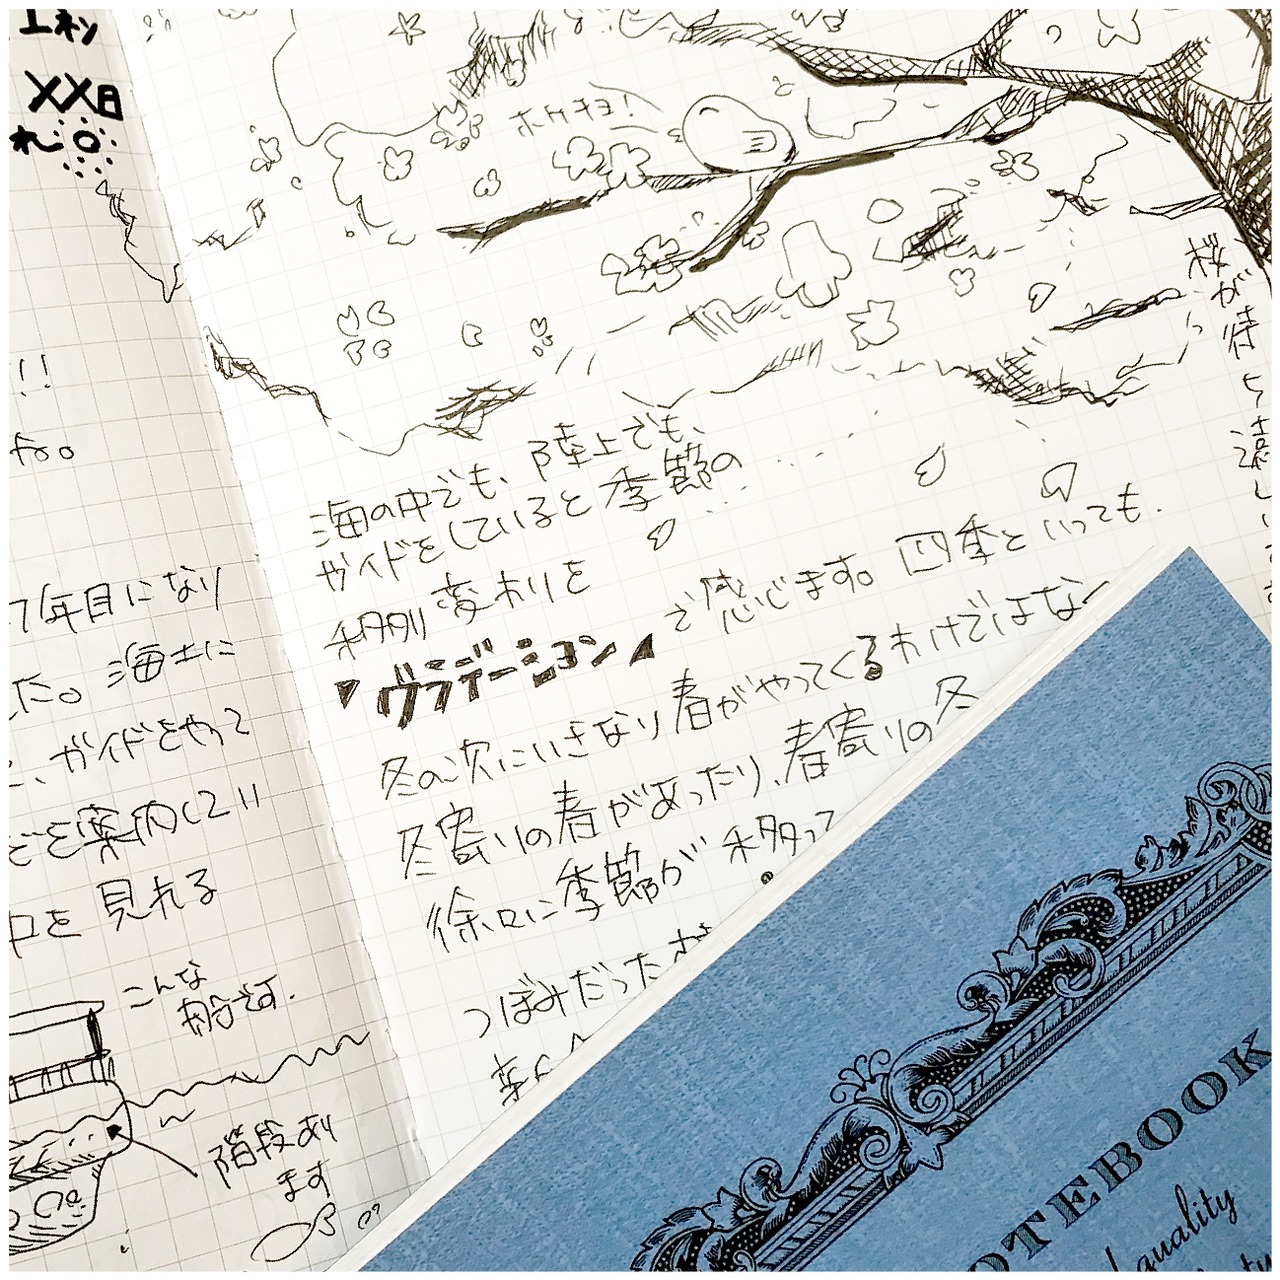 XX日
!!
ホケキョ!
桜が待ち遠しい
海の中でも、陸上でも、
ガイドをしていると季節の
移り変わりを
グラデーション
で感じます。四季といっても、
冬の次にいきなり春がやってくるわけではな
冬寄りの春があったり、春寄りの冬
徐々に季節が移って
つぼみだった
7年目になり
た。海士に
、ガイドをやって
を案内してい
を見れる
こんな
船です.
階段あり
ます
OTEBOOK
quality